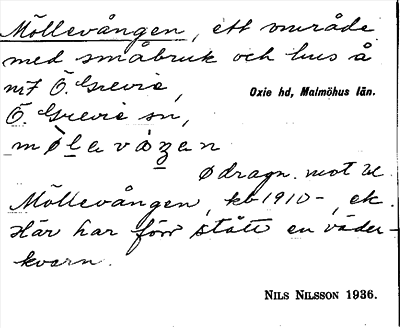 Möllevången, ett område
med småbruk och hus å
nr 7 Ö. Grevie,
Oxie hd, Malmöhus län.
Ö. Grevie sn,
mølavåʒen
ø dragn. mot œ
Möllevången, kb 1910-, ek.
Här har förr stått en väder-
kvarn.
NILS NILSSON 1936.